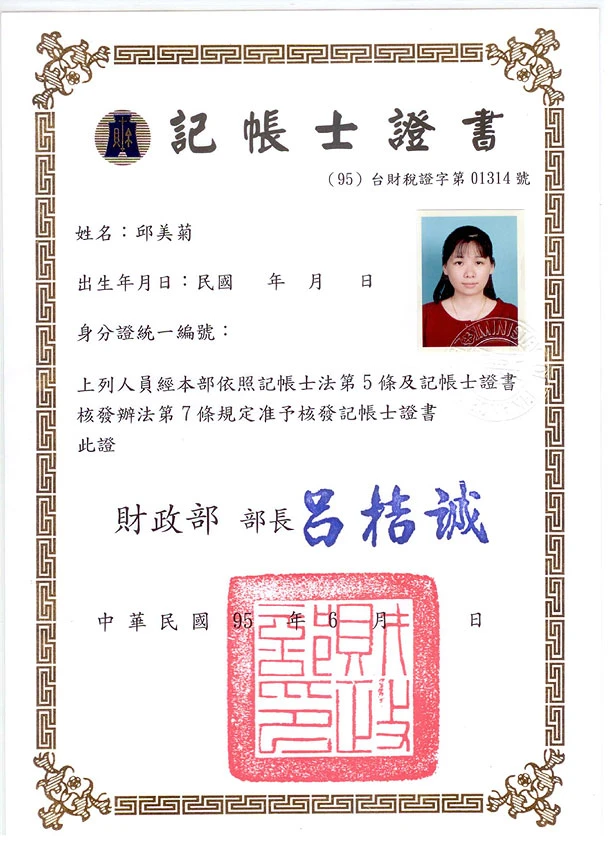 財
記帳士證書
（95）台財稅證字第 01314 號
姓名：邱美菊
出生年月日：民國　年　月　日
身分證統一編號：
上列人員經本部依照記帳士法第 5 條及記帳士證書
核發辦法第 7 條規定准予核發記帳士證書
此證
財政部 部長 呂桔誠
中華民國 95 年 6 月　日
財政部印